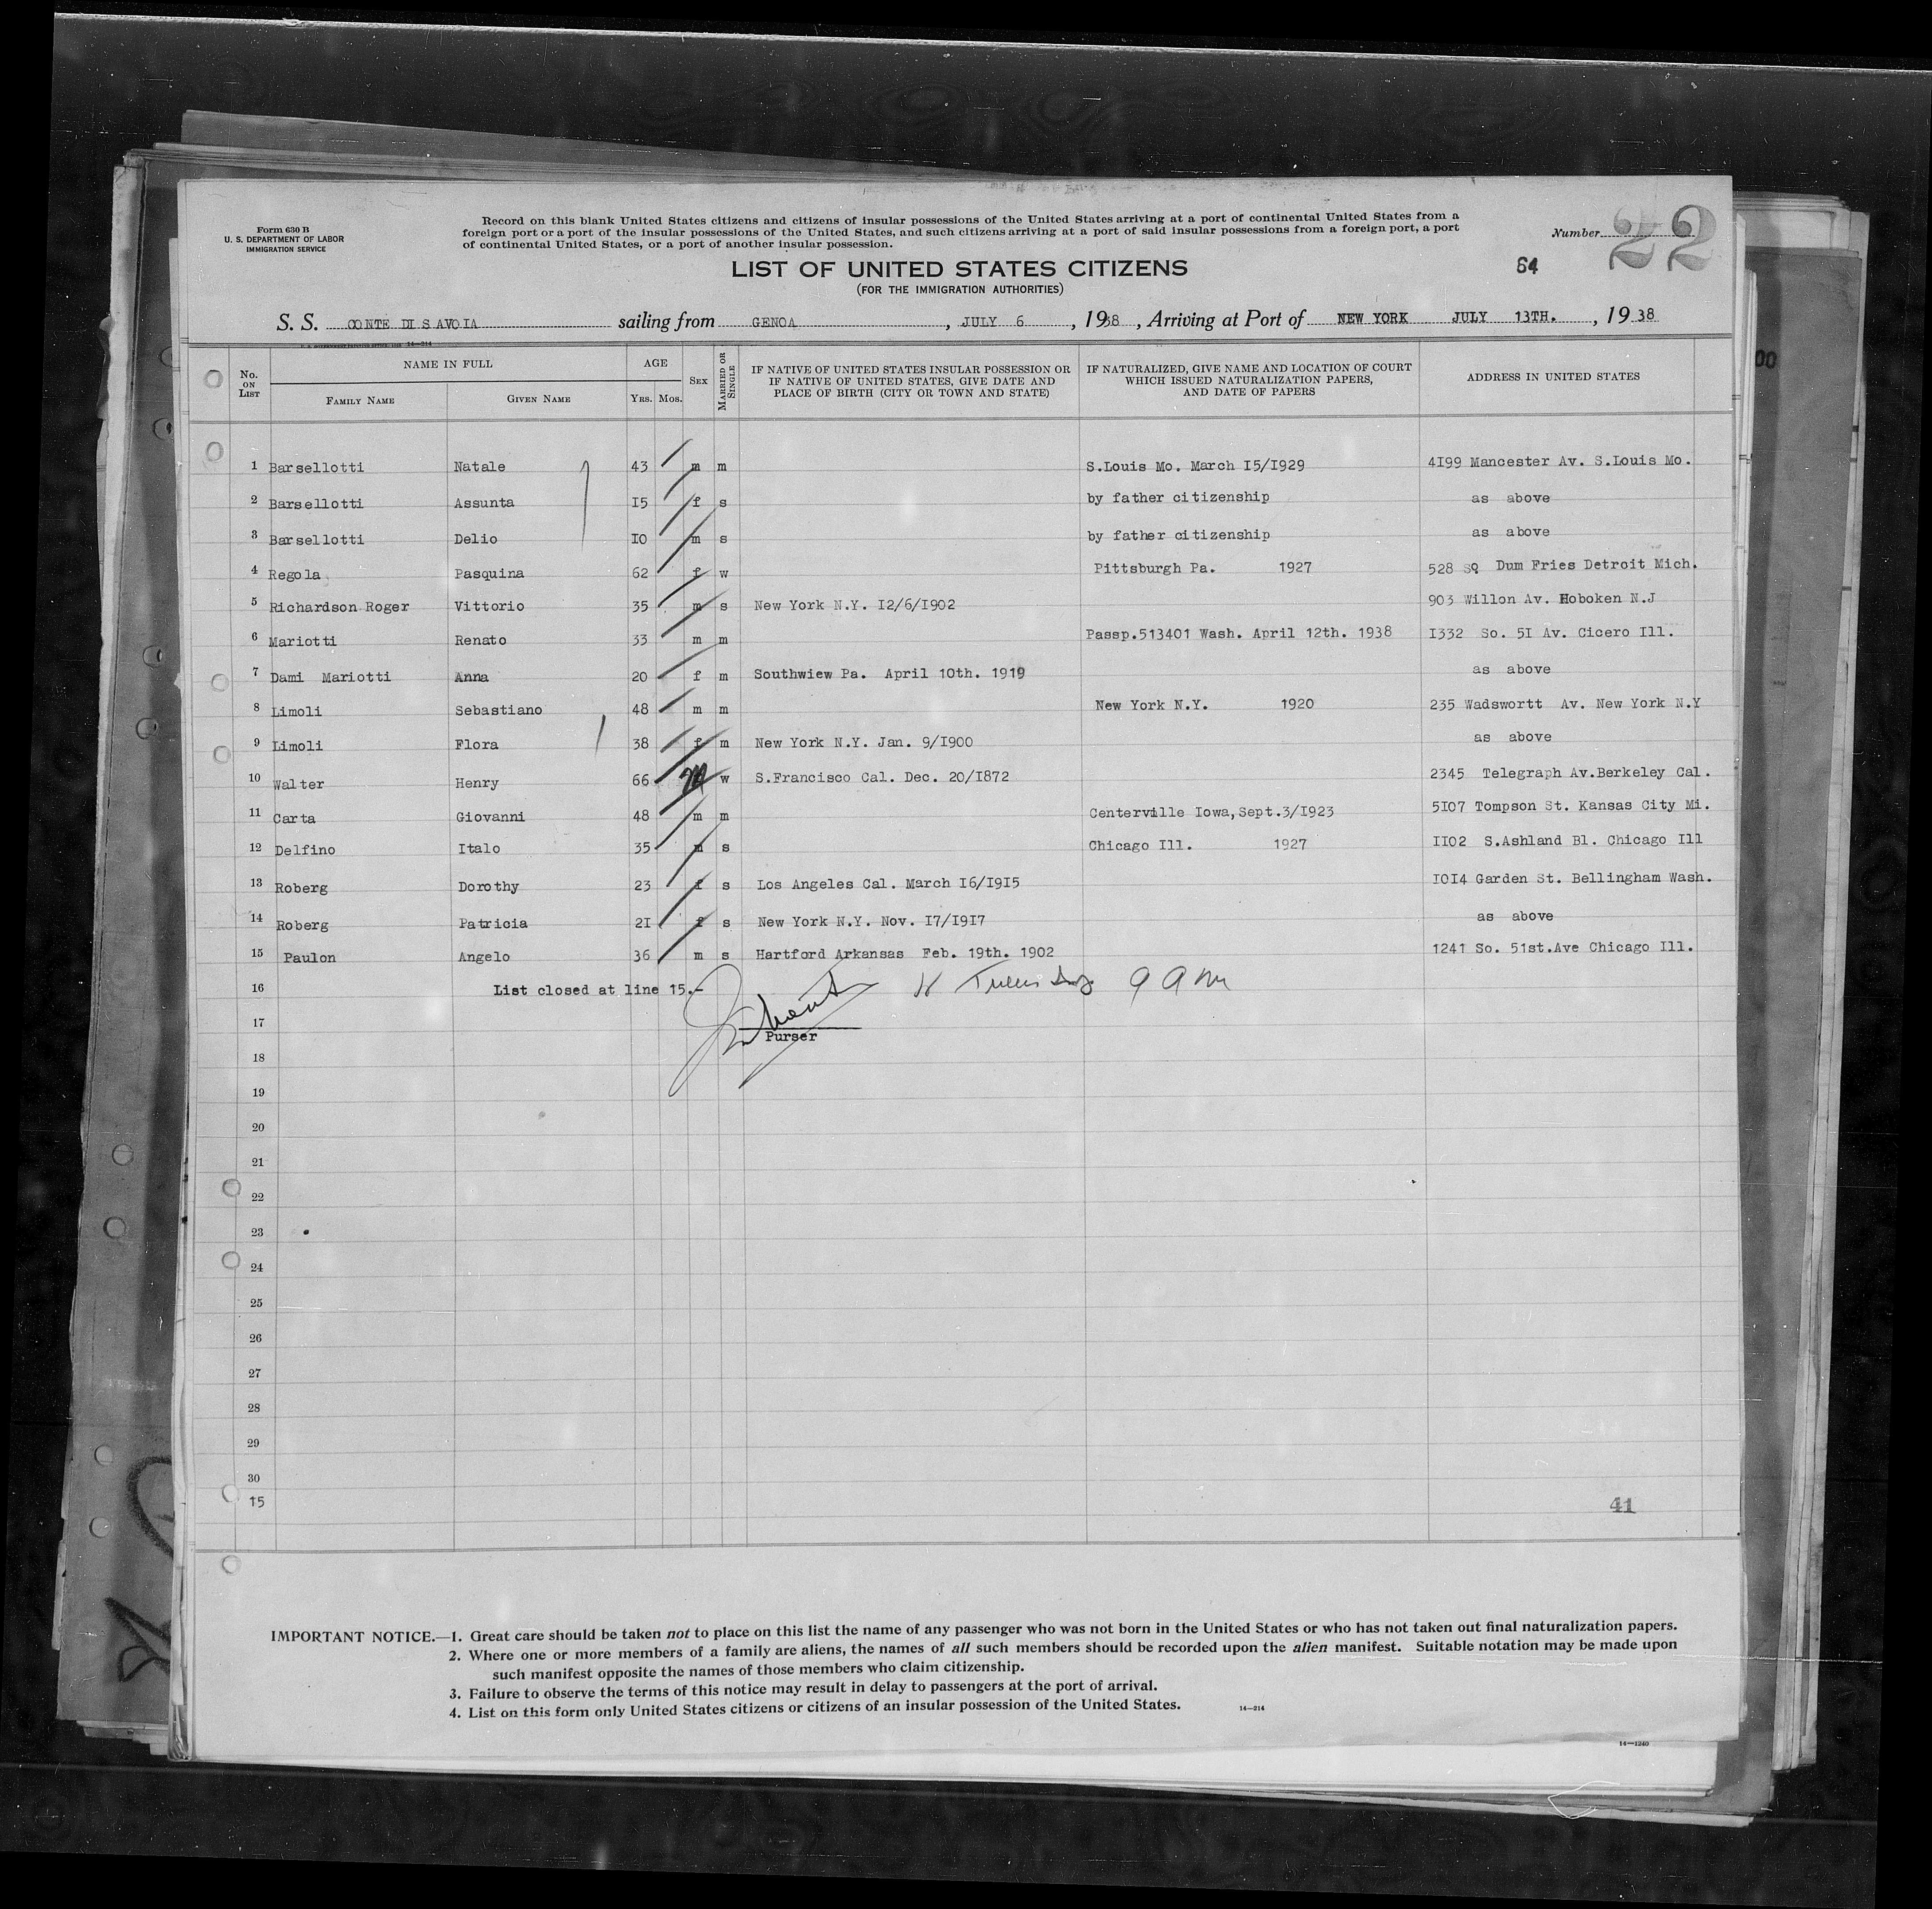 Form 630 B
U. S. DEPARTMENT OF LABOR
IMMIGRATION SERVICE
Record on this blank United States citizens and citizens of insular possessions of the United States arriving at a port of continental United States from a
foreign port or a port of the insular possessions of the United States, and such citizens arriving at a port of said insular possessions from a foreign port, a port
of continental United States, or a port of another insular possession.
Number 22
LIST OF UNITED STATES CITIZENS
64
(FOR THE IMMIGRATION AUTHORITIES)
S. S. CONTE DI SAVOIA sailing from GENOA, JULY 6, 1938, Arriving at Port of NEW YORK JULY 13TH., 1938
14—214
No. ON LIST
NAME IN FULL
FAMILY NAME
GIVEN NAME
AGE
YRS. MOS.
SEX
MARRIED OR SINGLE
IF NATIVE OF UNITED STATES INSULAR POSSESSION OR
IF NATIVE OF UNITED STATES, GIVE DATE AND
PLACE OF BIRTH (CITY OR TOWN AND STATE)
IF NATURALIZED, GIVE NAME AND LOCATION OF COURT
WHICH ISSUED NATURALIZATION PAPERS,
AND DATE OF PAPERS
ADDRESS IN UNITED STATES
00
1 Barsellotti Natale 43 m m S.Louis Mo. March I5/I929 4I99 Mancester Av. S.Louis Mo.
2 Barsellotti Assunta I5 f s by father citizenship as above
3 Barsellotti Delio IO m s by father citizenship as above
4 Regola Pasquina 62 f w Pittsburgh Pa. 1927 528 SQ Dum Fries Detroit Mich.
5 Richardson Roger Vittorio 35 m s New York N.Y. I2/6/I902 903 Willon Av. Hoboken N.J
6 Mariotti Renato 33 m m Passp.513401 Wash. April 12th. 1938 I332 So. 5I Av. Cicero Ill.
7 Dami Mariotti Anna 20 f m Southwiew Pa. April 10th. 1919 as above
8 Limoli Sebastiano 48 m m New York N.Y. 1920 235 Wadswortt Av. New York N.Y
9 Limoli Flora 38 f m New York N.Y. Jan. 9/I900 as above
10 Walter Henry 66 M w S.Francisco Cal. Dec. 20/I872 2345 Telegraph Av.Berkeley Cal.
11 Carta Giovanni 48 m m Centerville Iowa,Sept.3/I923 5I07 Tompson St. Kansas City Mi.
12 Delfino Italo 35 m s Chicago Ill. 1927 II02 S.Ashland Bl. Chicago Ill
13 Roberg Dorothy 23 f s Los Angeles Cal. March I6/I9I5 IOI4 Garden St. Bellingham Wash.
14 Roberg Patricia 2I f s New York N.Y. Nov. I7/I9I7 as above
15 Paulon Angelo 36 m s Hartford Arkansas Feb. 19th. 1902 1241 So. 51st.Ave Chicago Ill.
16 List closed at line 15.-
9 am
17
Purser
18
19
20
21
22
23
24
25
26
27
28
29
30
15
41
IMPORTANT NOTICE.—1. Great care should be taken not to place on this list the name of any passenger who was not born in the United States or who has not taken out final naturalization papers.
2. Where one or more members of a family are aliens, the names of all such members should be recorded upon the alien manifest. Suitable notation may be made upon
such manifest opposite the names of those members who claim citizenship.
3. Failure to observe the terms of this notice may result in delay to passengers at the port of arrival.
4. List on this form only United States citizens or citizens of an insular possession of the United States.
14—214
14—1240